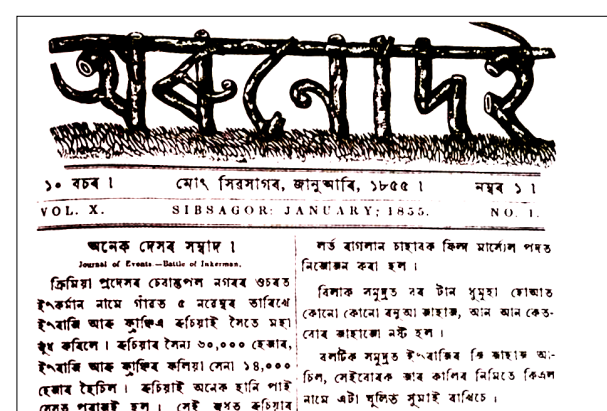 অৰুনোদই
১০ বচৰ ।
মোৎ সিৱসাগৰ, জানুআৰি, ১৮৫৫ ।
নম্বৰ ১ ।
VOL. X.
SIBSAGOR: JANUARY; 1855.
NO. 1.
অনেক দেসৰ সম্বাদ ।
Journal of Events.—Battle of Inkerman.
ক্ৰিমিয়া প্ৰদেসৰ চেবাস্তপল নগৰৰ ওচৰত
ইংকৰ্মান নামে গাঁৱত ৫ নৱেম্বৰ তাৰিখে
ইংৰাজি আৰু ফ্ৰাঞ্চিএ ৰুচিয়াই সৈতে মহা
যুধ কৰিলে । ৰুচিয়াৰ সৈন্য ৬০,০০০ হেজাৰ,
ইংৰাজি আৰু ফ্ৰাঞ্চিৰ কলিয়া সেনা ১৪,০০০
হেজাৰ হৈচিল । ৰুচিয়াই অনেক হানি পাই
পৰাজই হল । সেই ৰুচিয়াৰ
লৰ্ড ৰাগলান চাহাবক ফিল্দ মাৰ্সেল পদত
নিজোজন কৰা হল ।
বিলাক সমুদ্ৰত বৰ টান ধুমুহা হোআত
কোনো কোনো ৰনুআ জাহাজ, আন আন কেত-
বোৰ জাহাজো নস্ট হল ।
বলটিক সমুদ্ৰত ইংৰাজিৰ জি জাহাজ আ-
চিল, সেইবোৰক জাৰ কালিৰ নিমিতে কিএল
নামে এটা খুলিত সুমাই ৰাখিচে ।